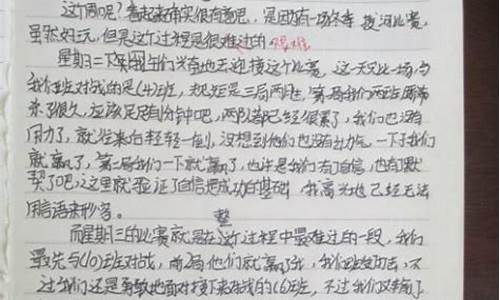 这个周呢?看起来确实很有意思,是因为有一场冬季拔河比赛,
虽然好玩,但是这个过程是很难过的 很难
星期二下午同学们兴奋地去迎接这个比赛,这一天又比一场,与
我们班对战的是(4)班,规矩是三局两胜,第一局我们两班
来了很久,应该足足有1分钟吧,两队都已经很累了,我们也没有
用力了,就往来自轻轻一刨,没想到他们也没有力气,一下子我们
就赢了,第二局我们一下就赢了,也许是我们有了自信,也有了默
契了吧,这里就验证了自信把成功的基础,我高兴地已经无法
用言语来形容。
整
而星期三的比赛就是在这个过程中最难过的一段,我们
最先与(10)班对战,前2局他们就赢了我,我们班没力,不
过我们还是勇敢地面对接下来对战的(6)班,不过我们又输了